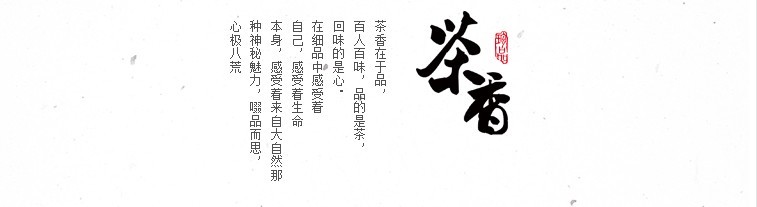 茶香
珍品
茶香在于品，
百人百味，品的是茶，
回味的是心。
在细品中感受着
自己，感受着生命
本身，感受着来自大自然那
种神秘魅力，啜品而思，
心极八荒